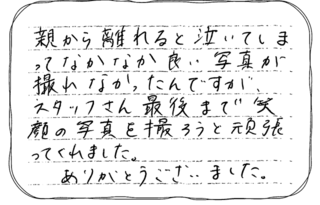 親から離れると泣いてしま
ってなかなか良い写真が
撮れなかったんですが、
スタッフさん最後まで笑
顔の写真を撮ろうと頑張
ってくれました。
ありがとうございました。